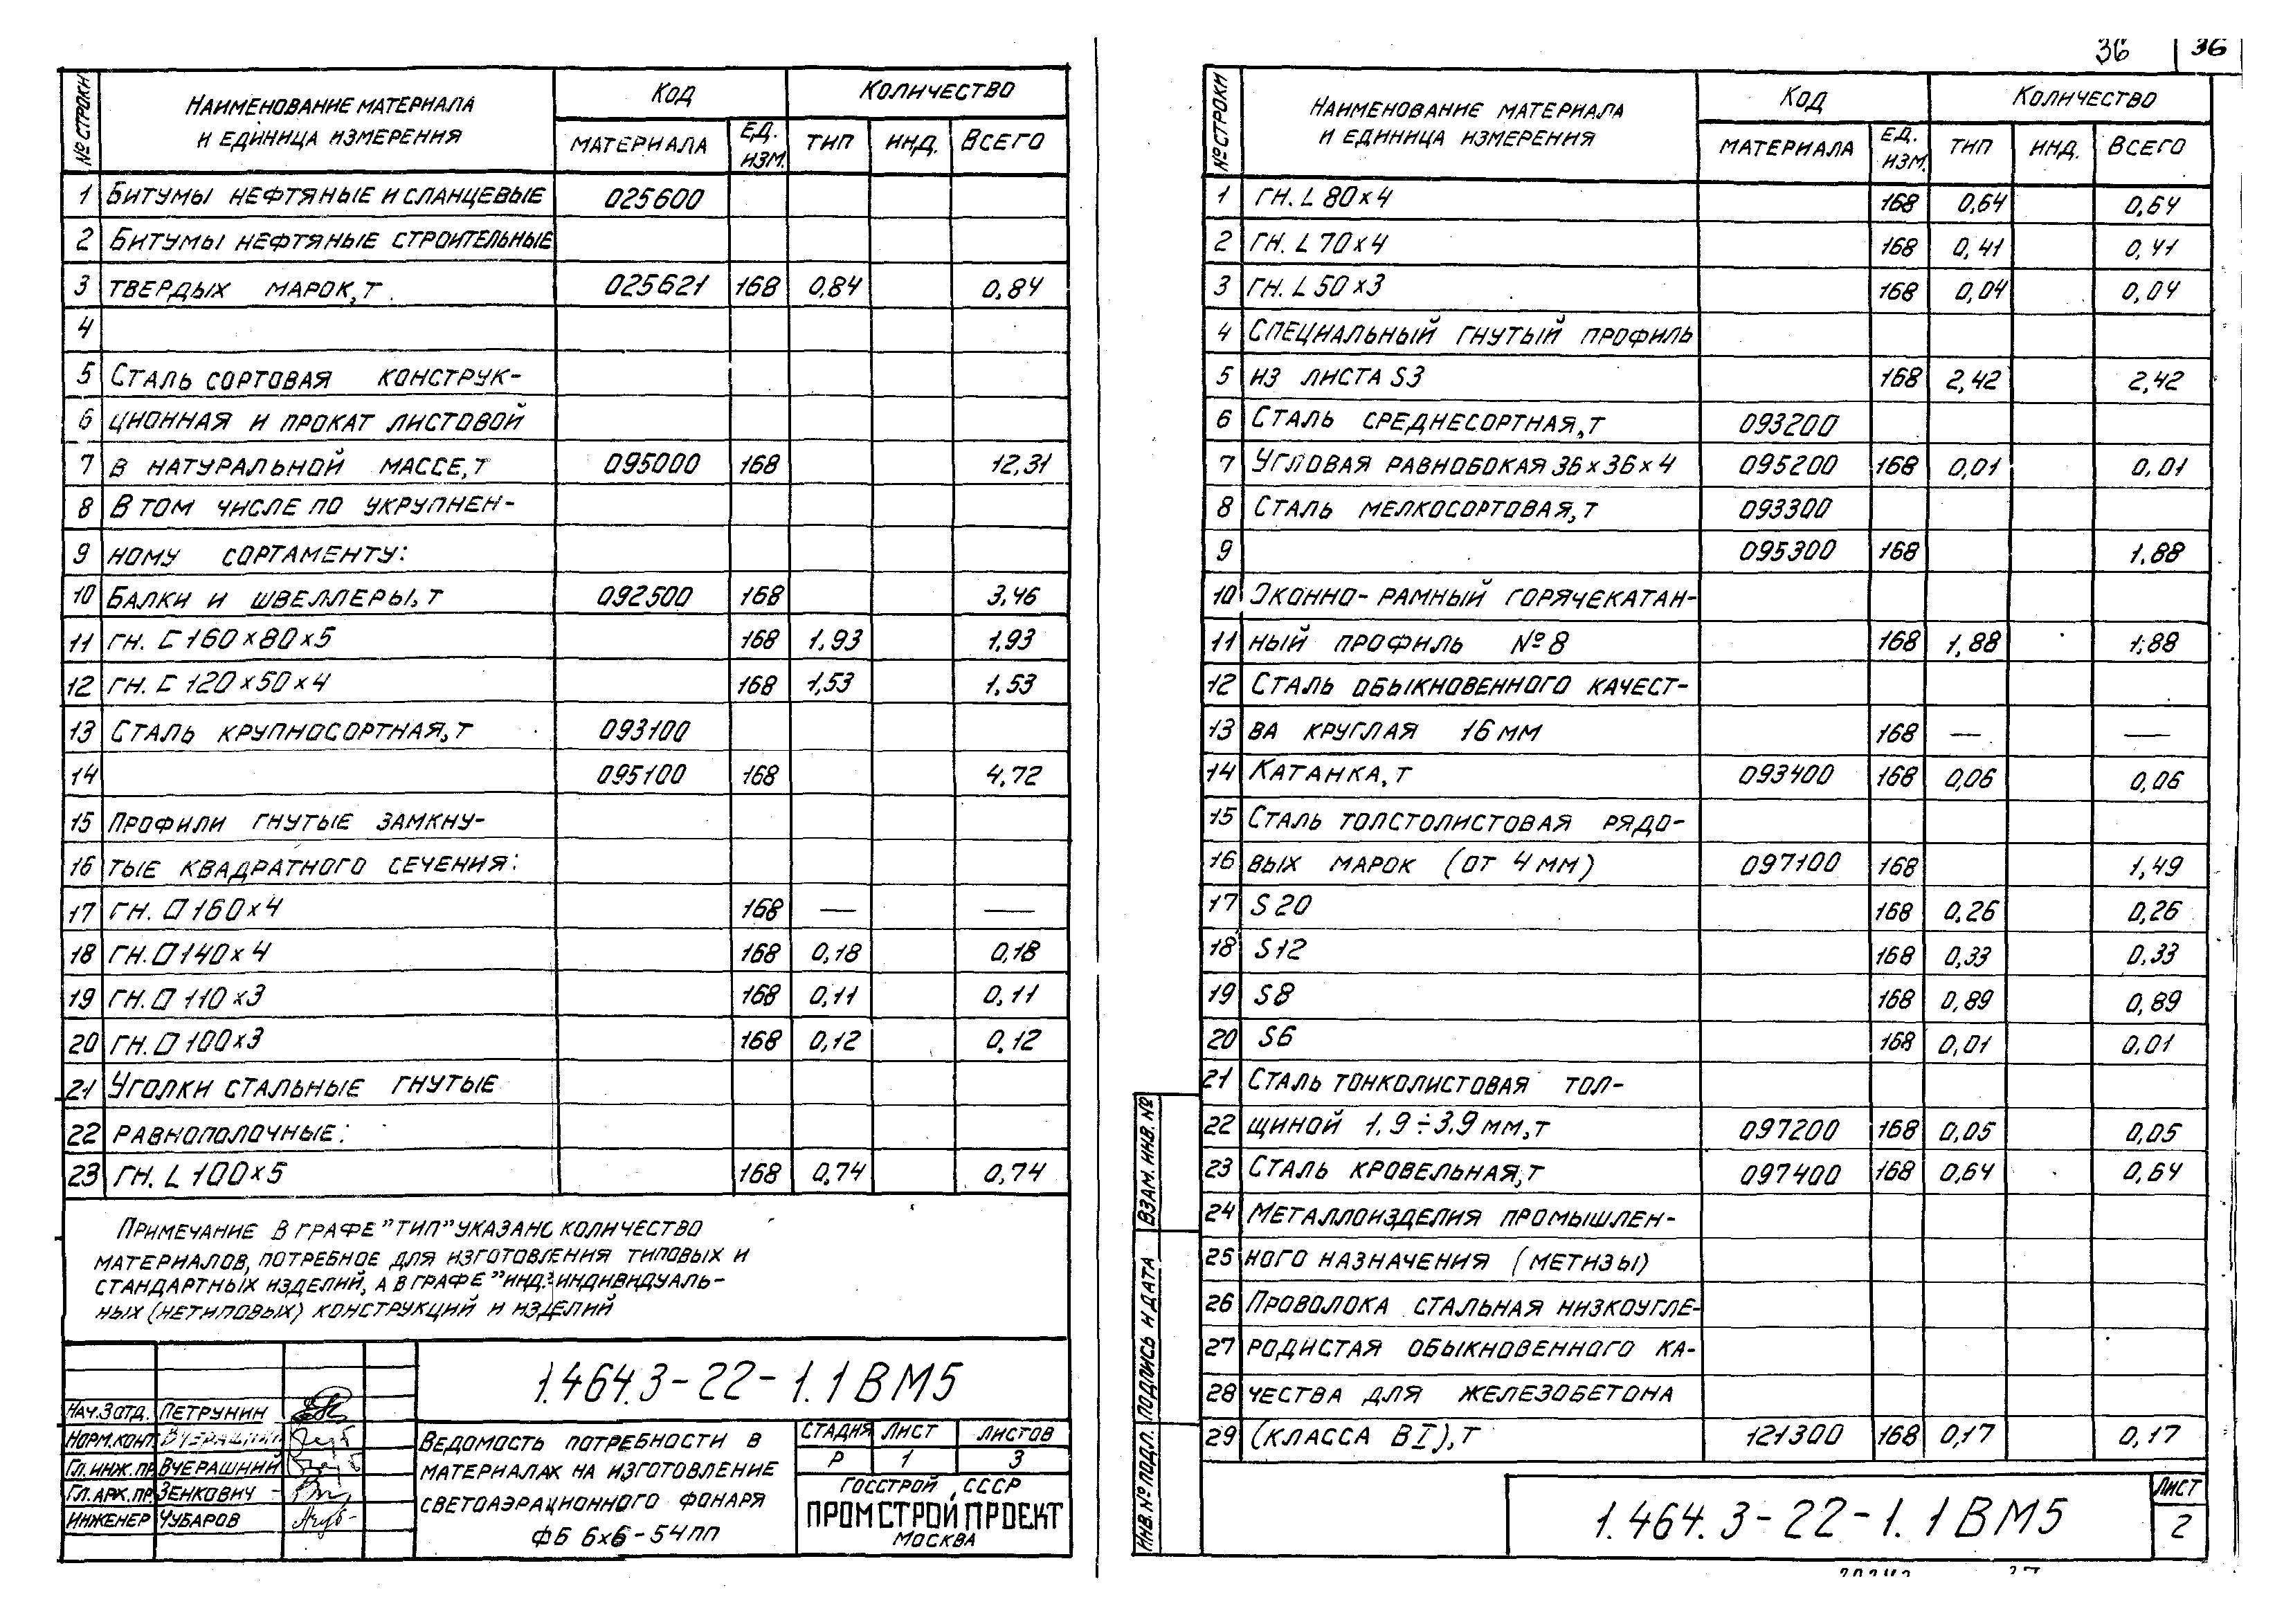 36
36
№ строки
Наименование материала
и единица измерения
Код
Количество
материала
ед. изм.
тип
инд.
Всего
1 Битумы нефтяные и сланцевые 025600
2 Битумы нефтяные строительные
3 твердых марок, т 025621 168 0,84 0,84
4
5 Сталь сортовая конструк-
6 ционная и прокат листовой
7 в натуральной массе, т 095000 168 12,31
8 В том числе по укрупнен-
9 ному сортаменту:
10 Балки и швеллеры, т 092500 168 3,46
11 гн. С 160×80×5 168 1,93 1,93
12 гн. С 120×50×4 168 1,53 1,53
13 Сталь крупносортная, т 093100
14 095100 168 4,72
15 Профили гнутые замкну-
16 тые квадратного сечения:
17 гн. □ 160×4 168 — —
18 гн. □ 140×4 168 0,18 0,18
19 гн. □ 110×3 168 0,11 0,11
20 гн. □ 100×3 168 0,12 0,12
21 Уголки стальные гнутые
22 равнополочные:
23 гн. L 100×5 168 0,74 0,74
Примечание В графе "тип" указано количество
материалов, потребное для изготовления типовых и
стандартных изделий, а в графе "инд." индивидуаль-
ных (нетиповых) конструкций и изделий
1.464.3-22-1.1 ВМ5
Нач.3отд. Петрунин
Норм.конт. Вчерашний
Гл.инж.пр. Вчерашний
Гл.арх.пр. Зенкович
Инженер Чубаров
Ведомость потребности в
материалах на изготовление
светоаэрационного фонаря
ФБ 6×6-54пп
Стадия Лист Листов
Р 1 3
Госстрой СССР
ПРОМСТРОЙПРОЕКТ
Москва
№ строки
Наименование материала
и единица измерения
Код
Количество
материала
ед. изм.
тип
инд.
Всего
1 гн. L 80×4 168 0,64 0,64
2 гн. L 70×4 168 0,41 0,41
3 гн. L 50×3 168 0,04 0,04
4 Специальный гнутый профиль
5 из листа S3 168 2,42 2,42
6 Сталь среднесортная, т 093200
7 Угловая равнобокая 36×36×4 095200 168 0,01 0,01
8 Сталь мелкосортовая, т 093300
9 095300 168 1,88
10 Оконно-рамный горячекатан-
11 ный профиль №8 168 1,88 1,88
12 Сталь обыкновенного качест-
13 ва круглая 16 мм 168 — —
14 Катанка, т 093400 168 0,06 0,06
15 Сталь толстолистовая рядо-
16 вых марок (от 4 мм) 097100 168 1,49
17 S20 168 0,26 0,26
18 S12 168 0,33 0,33
19 S8 168 0,89 0,89
20 S6 168 0,01 0,01
21 Сталь тонколистовая тол-
22 щиной 1,9÷3,9 мм, т 097200 168 0,05 0,05
23 Сталь кровельная, т 097400 168 0,64 0,64
24 Металлоизделия промышлен-
25 ного назначения (метизы)
26 Проволока стальная низкоугле-
27 родистая обыкновенного ка-
28 чества для железобетона
29 (класса ВI), т 121300 168 0,17 0,17
Инв. № подл. Подпись и дата Взам. инв. №
1.464.3-22-1.1 ВМ5
Лист
2